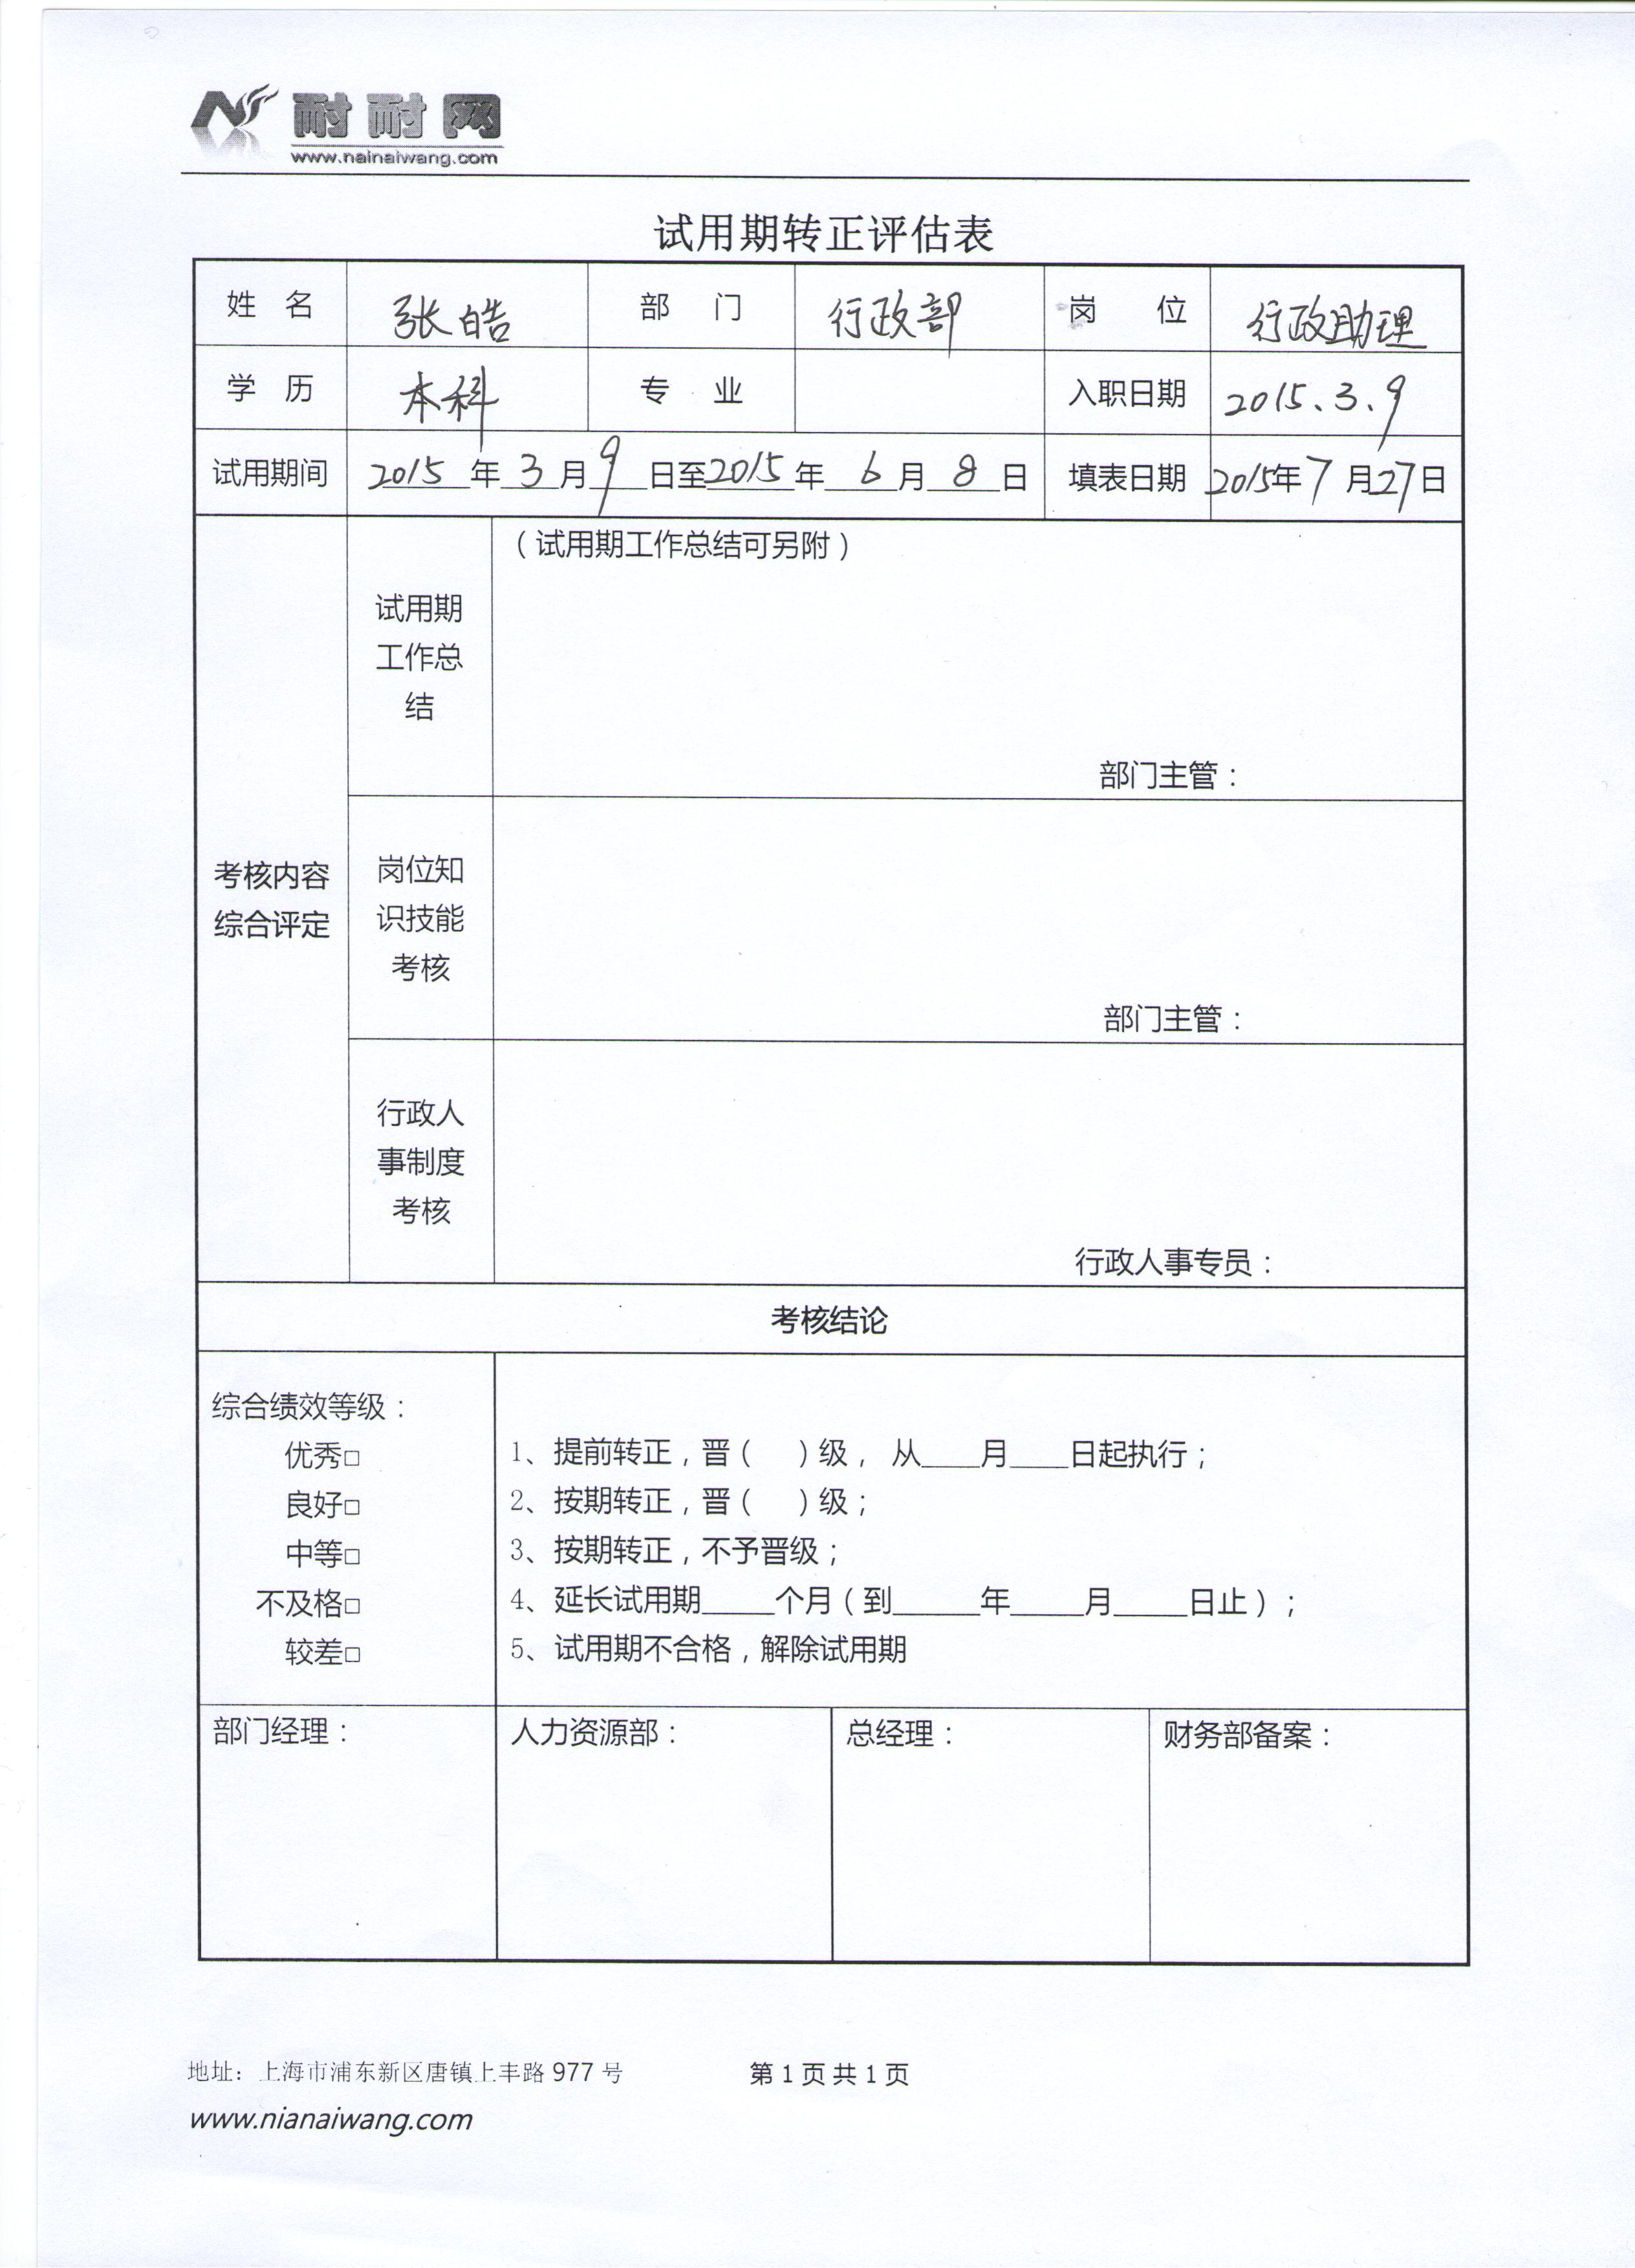 耐耐网
www.nainaiwang.com
试用期转正评估表
姓 名 张皓 部 门 行政部 岗 位 行政助理
学 历 本科 专 业 入职日期 2015、3、9
试用期间 2015年3月9日至2015年6月8日 填表日期 2015年7月27日
（试用期工作总结可另附）
试用期
工作总
结
部门主管：
考核内容
综合评定
岗位知
识技能
考核
部门主管：
行政人
事制度
考核
行政人事专员：
考核结论
综合绩效等级：
优秀□
良好□
中等□
不及格□
较差□
1、提前转正，晋（ ）级， 从____月____日起执行；
2、按期转正，晋（ ）级；
3、按期转正，不予晋级；
4、延长试用期_____个月（到______年_____月_____日止）；
5、试用期不合格，解除试用期
部门经理： 人力资源部： 总经理： 财务部备案：
地址：上海市浦东新区唐镇上丰路 977 号 第 1 页 共 1 页
www.nianaiwang.com